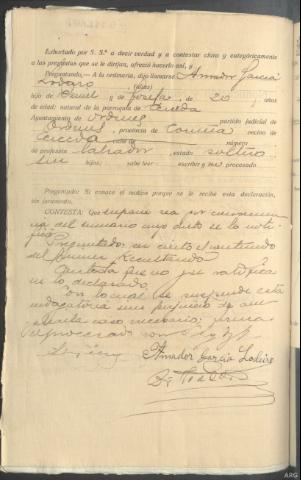 Exhortado por S. Sª a decir verdad y a contestar clara y categóricamente
a las preguntas que se le dirijan, ofreció hacerlo así, y
Preguntado.—A la ordinaria, dijo llamarse Amador García
Lodeiro (alias)
hijo de Daniel y de Josefa de 20 años
de edad; natural de la parroquia de
Ayuntamiento de Ordenes partido judicial de
Ordenes, provincia de Coruña vecino de
número
de profesión labrador, estado soltero
sin hijos; sabe leer y escribir y no procesado
Preguntado: Si conoce el motivo porque se le recibe esta declaración,
sin juramento.
CONTESTA: Que supone sea por
del sumario cuyo auto se le noti
ficó
Preguntado; en cierto el contenido
del primer Resultando
Contesta que no y se ratifica
en lo declarado.
Con lo cual se suspende esta
indagatoria sin perjuicio de am
pliarla caso necesario; firma
el procesado con S. Sª, doy fe
Amador García Lodeiro
ARG